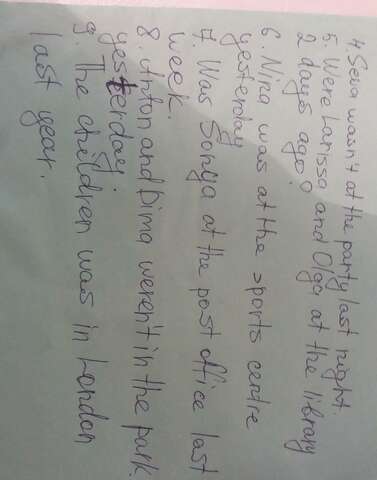 4. Seva wasn't at the party last night.
5. Were Larissa and Olga at the library
2 days ago?
6. Nina was at the sports centre
yesterday
7. Was Sonya at the post office last
week.
8. Anton and Dima weren't in the park
yesterday.
9. The children was in London
last year.